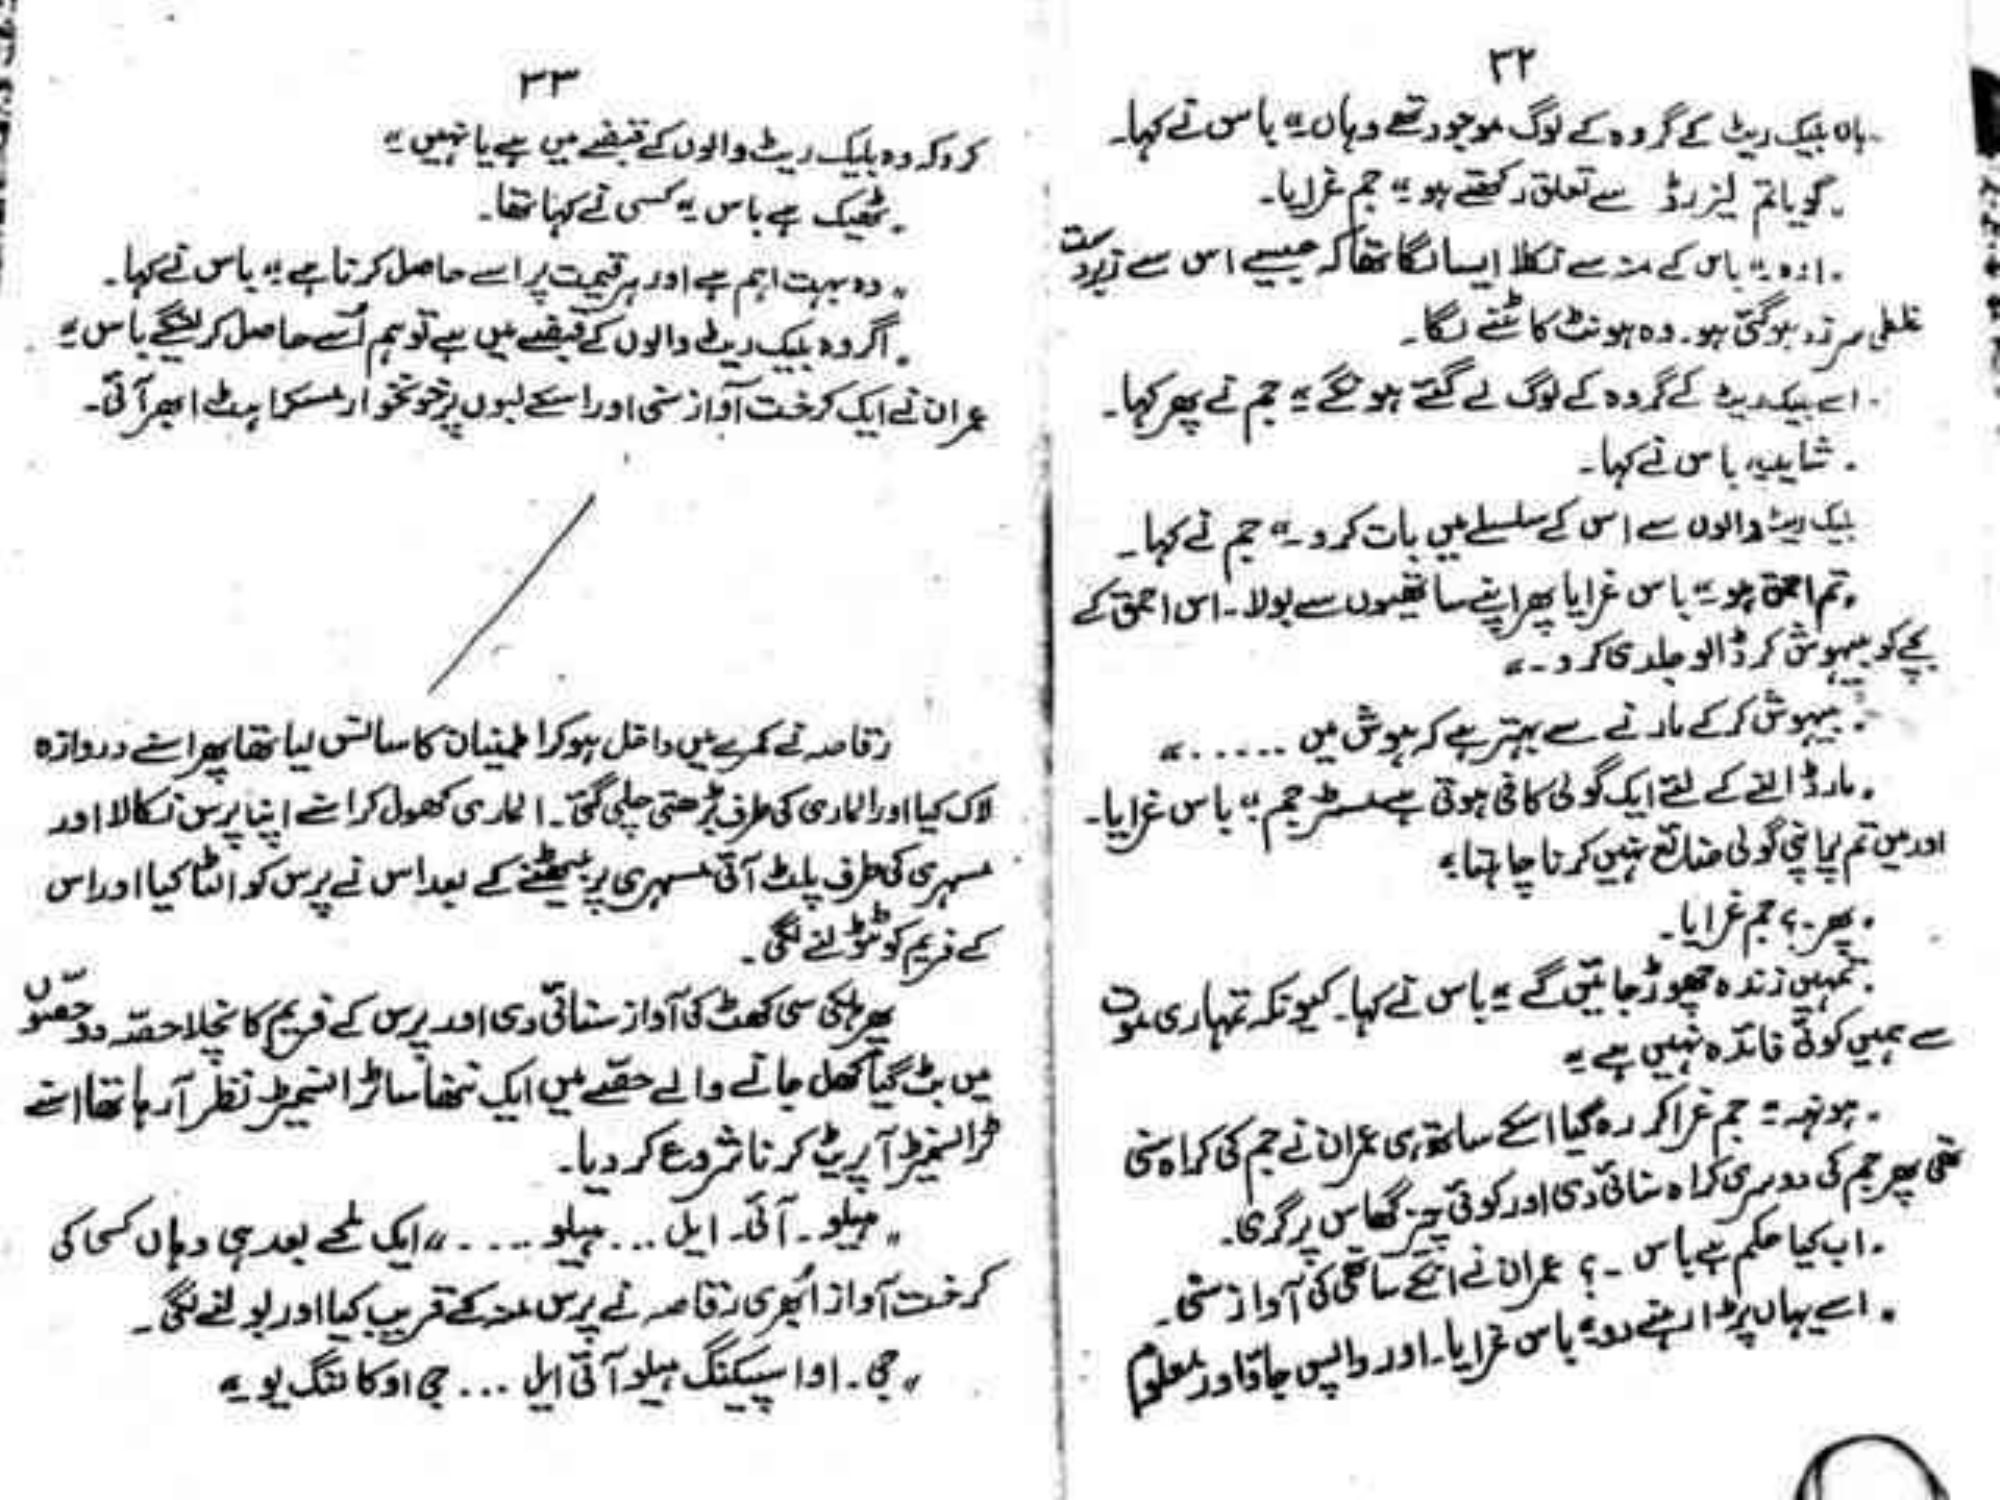 ۳۲
۔ ہاں بلیک ریٹ کے گروہ کے لوگ موجود تھے وہاں ۔" باس نے کہا۔
۔ گویا تم لیزرڈ سے تعلق رکھتے ہو ۔" جم غرایا۔
۔ اوہ ۔" باس کے منہ سے نکلا ایسا لگا تھا کہ جیسے اس سے زبردست
غلطی سرزد ہوگئی ہو۔ وہ ہونٹ کاٹنے لگا۔
۔ اسے بلیک ریٹ کے گروہ کے لوگ لے گئے ہونگے ۔" جم نے پھر کہا۔
۔ شاید۔" باس نے کہا۔
بلیک ریٹ والوں سے اس کے سلسلے میں بات کرو ۔" جم نے کہا۔
۔ تم احمق ہو ۔" باس غرایا پھر اپنے ساتھیوں سے بولا۔ اس احمق کے
بچے کو بیہوش کر ڈالو جلدی کرو ۔"
۔ بیہوش کر کے مارنے سے بہتر ہے کہ ہوش میں ......"
۔ مار ڈالنے کے لئے ایک گولی کافی ہوتی ہے مسٹر جم ۔" باس غرایا۔
اور میں تم پر اپنی گولی ضائع نہیں کرنا چاہتا ۔"
۔ پھر ۔؟ جم غرایا۔
۔ تمہیں زندہ چھوڑ جائیں گے ۔" باس نے کہا۔ کیونکہ تمہاری موت
سے ہمیں کوئی فائدہ نہیں ہے ۔"
۔ ہونہہ ۔" جم غرا کر رہ گیا اسکے ساتھ ہی عمران نے جم کی کراہ سنی
تھی پھر جم کی دوسری کراہ سنائی دی اور کوئی چیز گھاس پر گری۔
۔ اب کیا حکم ہے باس ۔؟ عمران نے انکے ساتھی کی آواز سنی۔
۔ اسے یہاں پڑا رہنے دو ۔" باس غرایا۔ اور واپس جاؤ اور معلوم
۳۳
کرو کہ وہ بلیک ریٹ والوں کے قبضے میں ہے یا نہیں ۔"
۔ ٹھیک ہے باس ۔" کسی نے کہا تھا۔
" وہ بہت اہم ہے اور ہر قیمت پر اسے حاصل کرنا ہے ۔" باس نے کہا۔
۔ اگر وہ بلیک ریٹ والوں کے قبضے میں ہے تو ہم اُسے حاصل کر لینگے باس ۔"
عمران نے ایک کرخت آواز سنی اور اسکے لبوں پر خونخوار مسکراہٹ ابھر آئی۔
رقاصہ نے کمرے میں داخل ہوکر اطمینان کا سانس لیا تھا پھر اسنے دروازہ
لاک کیا اور الماری کی طرف بڑھتی چلی گئی۔ الماری کھول کر اسنے اپنا پرس نکالا اور
مسہری کی طرف پلٹ آئی مسہری پر بیٹھنے کے بعد اس نے پرس کو الٹا کیا اور اس
کے فریم کو ٹٹولنے لگی۔
پھر ہلکی سی کھٹ کی آواز سنائی دی اور پرس کے فریم کا نچلا حصّہ دو حصّوں
میں بٹ گیا کھل جانے والے حصّے میں ایک ننھا سا ٹرانسمیٹر نظر آ رہا تھا اسنے
ٹرانسمیٹر آپریٹ کرنا شروع کر دیا۔
" ہیلو۔ آئی۔ ایل ... ہیلو ...." ایک لمحے بعد ہی وہاں کسی کی
کرخت آواز اُبھری رقاصہ نے پرس منہ کے قریب کیا اور بولنے لگی۔
" جی۔ او اسپیکنگ ہیلو آئی ایل ... جی او کالنگ یو ۔"